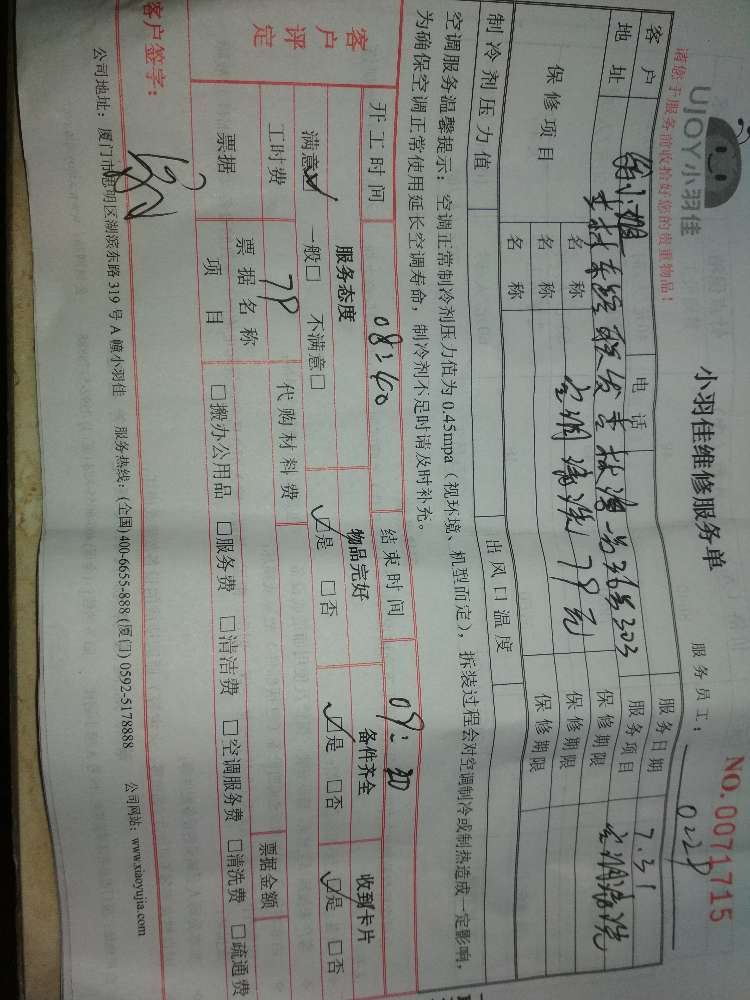 UJOY小羽佳
小羽佳维修服务单
NO.0071715
请您于服务前收拾好您的贵重物品！
服务员工：
客户
电话
服务日期 7.31
地址
303
服务项目 空调清洗
保修项目
名称 空调清洗 79元
保修期限
名称
保修期限
名称
保修期限
制冷剂压力值
出风口温度
空调服务温馨提示：空调正常制冷剂压力值为0.45mpa（视环境、机型而定），拆装过程会对空调制冷或制热造成一定影响，
为确保空调正常使用延长空调寿命，制冷剂不足时请及时补充。
客户评定
开工时间 08:40
结束时间 09:20
服务态度
物品完好
备件齐全
收到卡片
满意☑ 一般□ 不满意□
☑是 □否
☑是 □否
☑是 □否
工时费 79
代购材料费
票据
票据名称
票据金额
项目
□搬办公用品 □服务费 □清洁费 □空调服务费 □清洗费 □疏通费
客户签字：
公司地址：厦门市思明区湖滨东路319号A幢小羽佳 服务热线：(全国) 400-6655-888 (厦门) 0592-5178888 公司网站：www.xiaoyujia.com